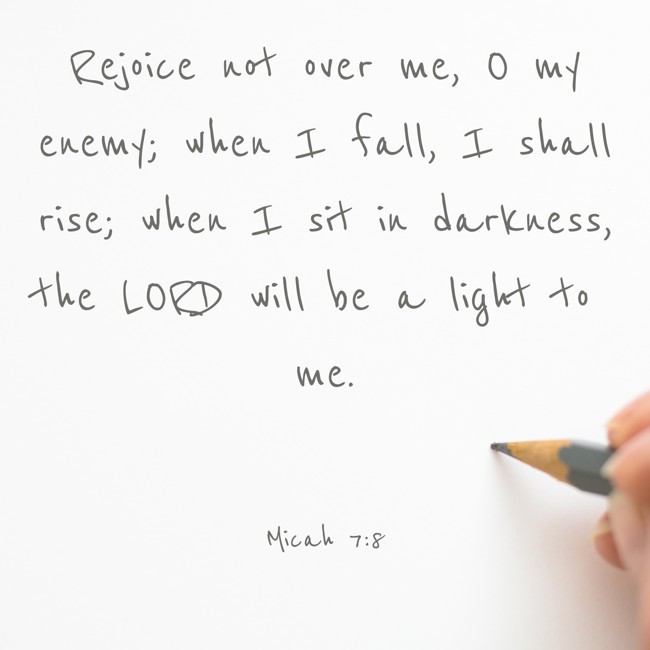 Rejoice not over me, O my
enemy; when I fall, I shall
rise; when I sit in darkness,
the LORD will be a light to
me.
Micah 7:8